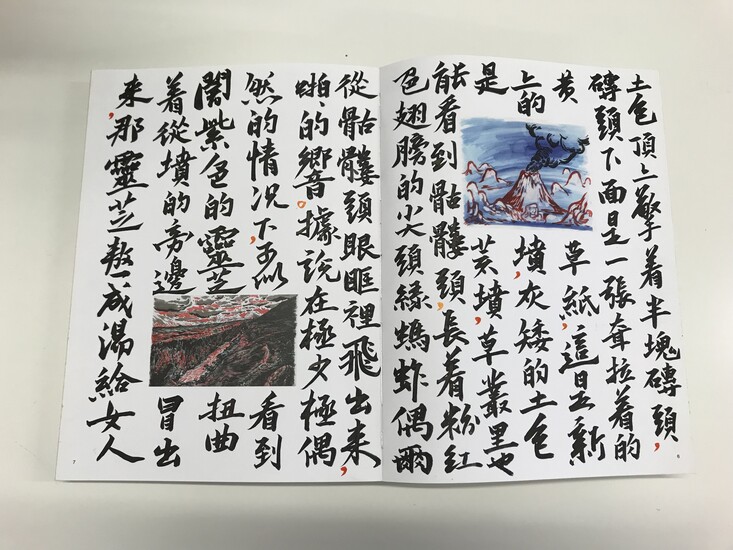 土色頂上擎着半塊磚頭，
磚頭下面是一張耷拉着的
黄草紙，這是新
上的墳，灰矮的土色
是荒墳，草叢里也
能看到骷髏頭，長着粉紅
色翅膀的尖頭緑螞蚱偶爾
6
從骷髏頭眼眶裡飛出来，
啪、的響。據説在極少極偶
然的情况下，可以看到
闇紫色的靈芝扭曲
着從墳的旁邊冒出
来，那靈芝熬成湯給女人
7